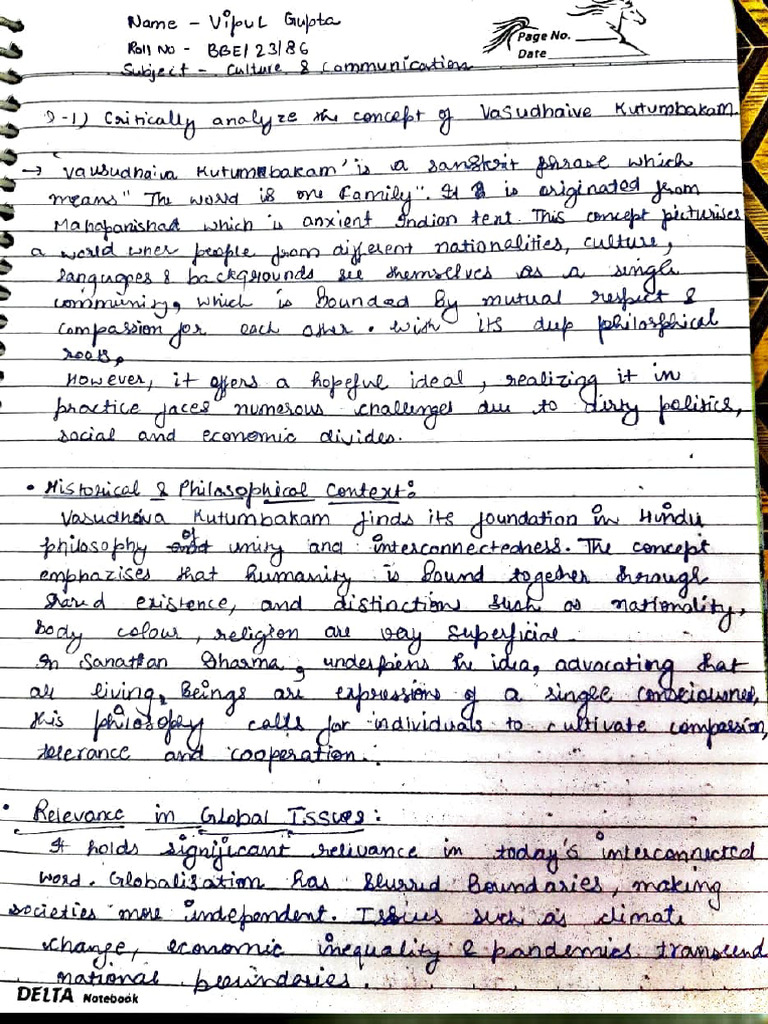 Name - Vipul Gupta
Roll No - BBE/23/86
Page No.
Date
Subject - Culture & Communication
Q-1) Critically analyze the concept of Vasudhaive Kutumbakam.
→ 'Vausudhaiva Kutumbakam' is a sanskrit phrase which
means " The world is one family". It is originated from
Mahopanishad which is anxient Indian text. This concept picturises
a world wher people from different nationalities, culture,
languages & backgrounds see themselves as a single
community, which is bounded by mutual respect &
compassion for each other. with its deep philosphical
roots,
However, it offers a hopeful ideal, realizing it in
practice faces numerous challenges due to dirty politics,
social and economic divides.
• Historical & Philosophical Context:
Vasudhaiva Kutumbakam finds its foundation in Hindu
philosophy of unity and interconnectedness. The concept
emphazises that humanity is bound together through
shared existence, and distinctions such as nationality,
body colour, religion are very superficial.
In Sanathan Dharma, underpins the idea, advocating that
all living, Beings are expressions of a single consciousness,
this philosophy calls for individuals to cultivate compassion,
tolerance and cooperation.
• Relevance in Global Issues:
It holds significant relivance in today's interconnected
word. Globalisation has blurred Boundaries, making
societies more independent. Issues such as climate
change, economic inequality & pandemics transcend
national bounndaries.
DELTA Notebook